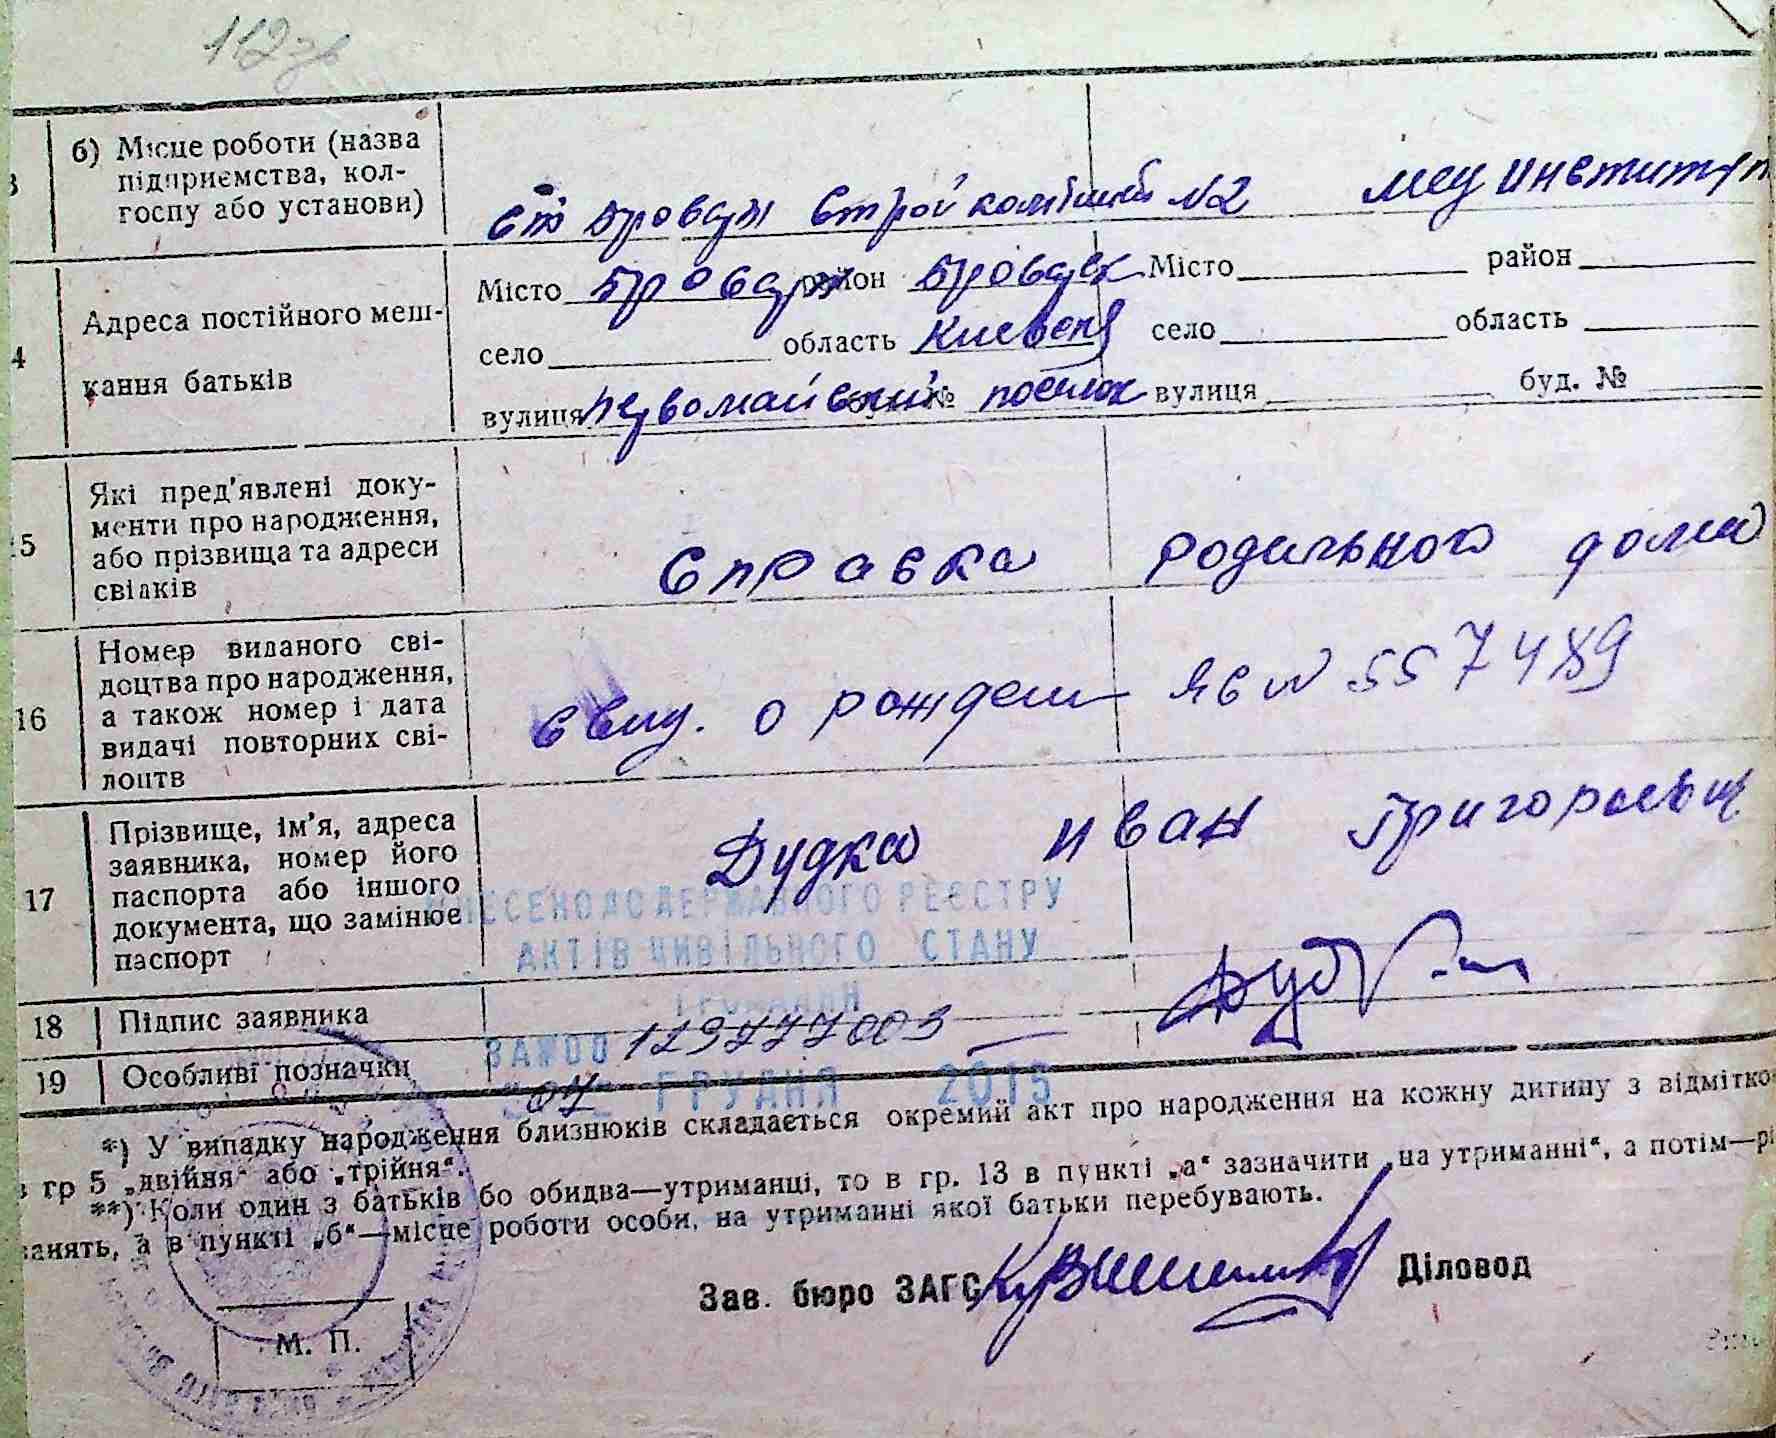 112
б) Місце роботи (назва підприємства, колгоспу або установи)
ст Бровари Строй N2 мединститут
4 Адреса постійного мешкання батьків
Місто Бровары район Бровар Місто район
село область Киевск село область
вулиця Первомайский буд. № поселок вулиця буд. №
15 Які пред'явлені документи про народження, або прізвища та адреси свідків
Справка родильного дома
16 Номер виданого свідоцтва про народження, а також номер і дата видачі повторних свідоцтв
Свид. о рожден N 557489
17 Прізвище, ім'я, адреса заявника, номер його паспорта або іншого документа, що замінює паспорт
Дудка Иван Григорьевич
ВНЕСЕНО ДО ДЕРЖАВНОГО РЕЄСТРУ
АКТІВ ЦИВІЛЬНОГО СТАНУ
ГРОМАДЯН
18 Підпис заявника
ЗА №00 123777003
19 Особливі позначки
07 ГРУДНЯ 2015
*) У випадку народження близнюків складається окремий акт про народження на кожну дитину з відмітко
в гр 5 „двійня“ або „трійня“.
**) Коли один з батьків бо обидва—утриманці, то в гр. 13 в пункті „а“ зазначити „на утриманні“, а потім—рі
занять, а в пункті „б“—місце роботи особи, на утриманні якої батьки перебувають.
Зав. бюро ЗАГС Діловод
М. П.